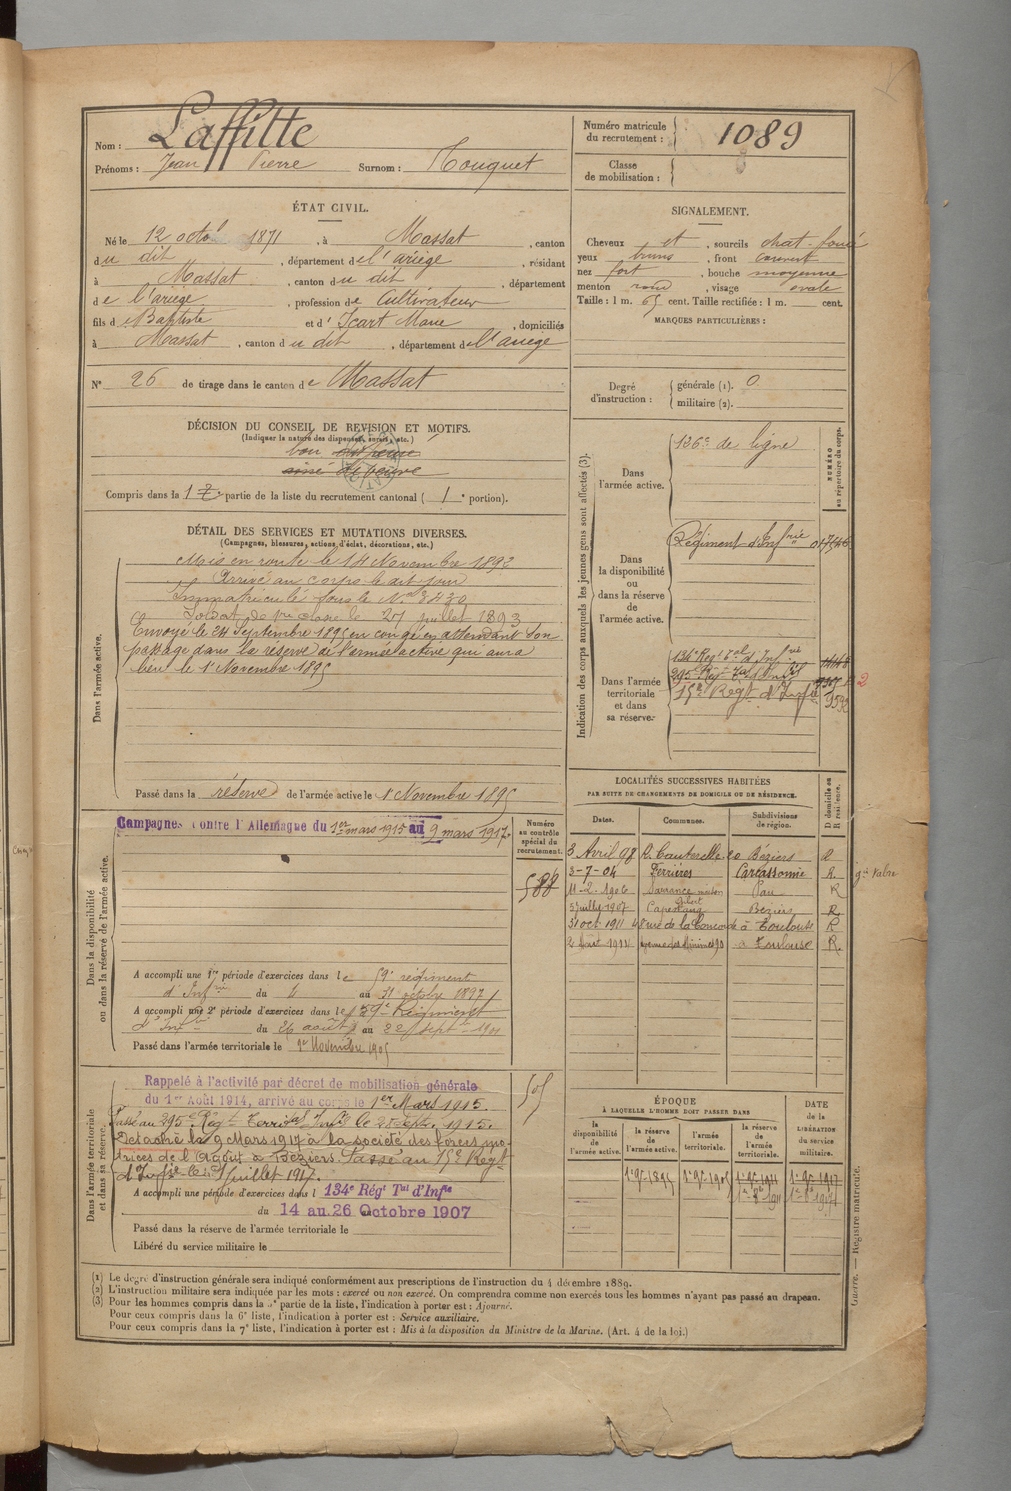 Nom : Laffitte
Prénoms : Jean Pierre Surnom : Touquet
Numéro matricule du recrutement : 1089
Classe de mobilisation :
ÉTAT CIVIL.
Né le 12 octo 1871, à Massat, canton
du dit, département de l'ariège, résidant
à Massat, canton du dit, département
de l'ariège, profession de Cultivateur
fils de Baptiste et d'Icart Marie, domiciliés
à Massat, canton du dit, département de l'ariège
N° 26 de tirage dans le canton de Massat
SIGNALEMENT.
Cheveux et, sourcils chat-foncé
yeux bruns, front couvert
nez fort, bouche moyenne
menton rond, visage ovale
Taille : 1 m. 65 cent. Taille rectifiée : 1 m. cent.
MARQUES PARTICULIÈRES :
Degré d'instruction : générale (1). 0
militaire (2).
DÉCISION DU CONSEIL DE REVISION ET MOTIFS.
(Indiquer la nature des dispenses, sursis, etc.)
bon
ainé de veuve
Compris dans la 1re partie de la liste du recrutement cantonal ( 1e portion).
DÉTAIL DES SERVICES ET MUTATIONS DIVERSES.
(Campagnes, blessures, actions d'éclat, décorations, etc.)
Dans l'armée active.
Mis en route le 14 Novembre 1892
Arrivé au corps le dit jour
Immatriculé sous le N° 3430
Soldat de 1re classe le 27 juillet 1893
Envoyé le 24 Septembre 1895 en congé en attendant son
passage dans la réserve de l'armée active qui aura
lieu le 1er Novembre 1895
Passé dans la réserve de l'armée active le 1 Novembre 1895
Indication des corps auxquels les jeunes gens sont affectés (3).
NUMÉRO au répertoire du corps.
Dans l'armée active. 126e de ligne
Dans la disponibilité ou dans la réserve de l'armée active. Régiment d'Infrie
Dans l'armée territoriale et dans sa réserve. 134e Regt Tal d'Infrie
295e Régt
15e Regt d'Infie 9592
LOCALITÉS SUCCESSIVES HABITÉES
PAR SUITE DE CHANGEMENTS DE DOMICILE OU DE RÉSIDENCE.
Dates. Communes. Subdivisions de région. D domicile ou R résidence.
3 Avril 98 Béziers R
3-7-04 Ferrières Carcassonne R.
11-2-1906 Sarrance Pau R
5 juillet 1907 Capestang Béziers R
31 oct 1911 48 rue de la Concorde à Toulouse R
2 Août 1914 Minimes 90 à Toulouse R.
Dans la disponibilité ou dans la réserve de l'armée active.
Campagnes contre l'Allemagne du 1er mars 1915 au 9 mars 1917.
Numéro au contrôle spécial du recrutement.
588
A accompli une 1re période d'exercices dans le 59e régiment
d'Infrie du 4 au 31 octobre 1897
A accompli une 2e période d'exercices dans le 59e Régiment
d'Infrie du 26 août au 22 sept 1901
Passé dans l'armée territoriale le 1er Novembre 1905
Dans l'armée territoriale et dans sa réserve.
Rappelé à l'activité par décret de mobilisation générale
du 1er Août 1914, arrivé au corps le 1er Mars 1915.
505
Passé au 295e Régt Territal Infie le 25 Sept. 1915.
Détaché le 9 Mars 1917 à la société des forces mo-
trices de l'Agout à Béziers. Passé au 15e Regt
d'Infie le 1er Juillet 1917.
A accompli une période d'exercices dans l 134e Régt Tal d'Infie
du 14 au 26 Octobre 1907
Passé dans la réserve de l'armée territoriale le
Libéré du service militaire le
ÉPOQUE
À LAQUELLE L'HOMME DOIT PASSER DANS
la disponibilité de l'armée active. la réserve de l'armée active. l'armée territoriale. la réserve de l'armée territoriale. DATE de la LIBÉRATION du service militaire.
1er 9bre 1895 1er 9bre 1905 1er 9bre 1911 1er 9bre 1917
(1) Le degré d'instruction générale sera indiqué conformément aux prescriptions de l'instruction du 4 décembre 1889.
(2) L'instruction militaire sera indiquée par les mots : exercé ou non exercé. On comprendra comme non exercés tous les hommes n'ayant pas passé au drapeau.
(3) Pour les hommes compris dans la 5e partie de la liste, l'indication à porter est : Ajourné.
Pour ceux compris dans la 6e liste, l'indication à porter est : Service auxiliaire.
Pour ceux compris dans la 7e liste, l'indication à porter est : Mis à la disposition du Ministre de la Marine. (Art. 4 de la loi.)
Guerre. — Registre matricule.